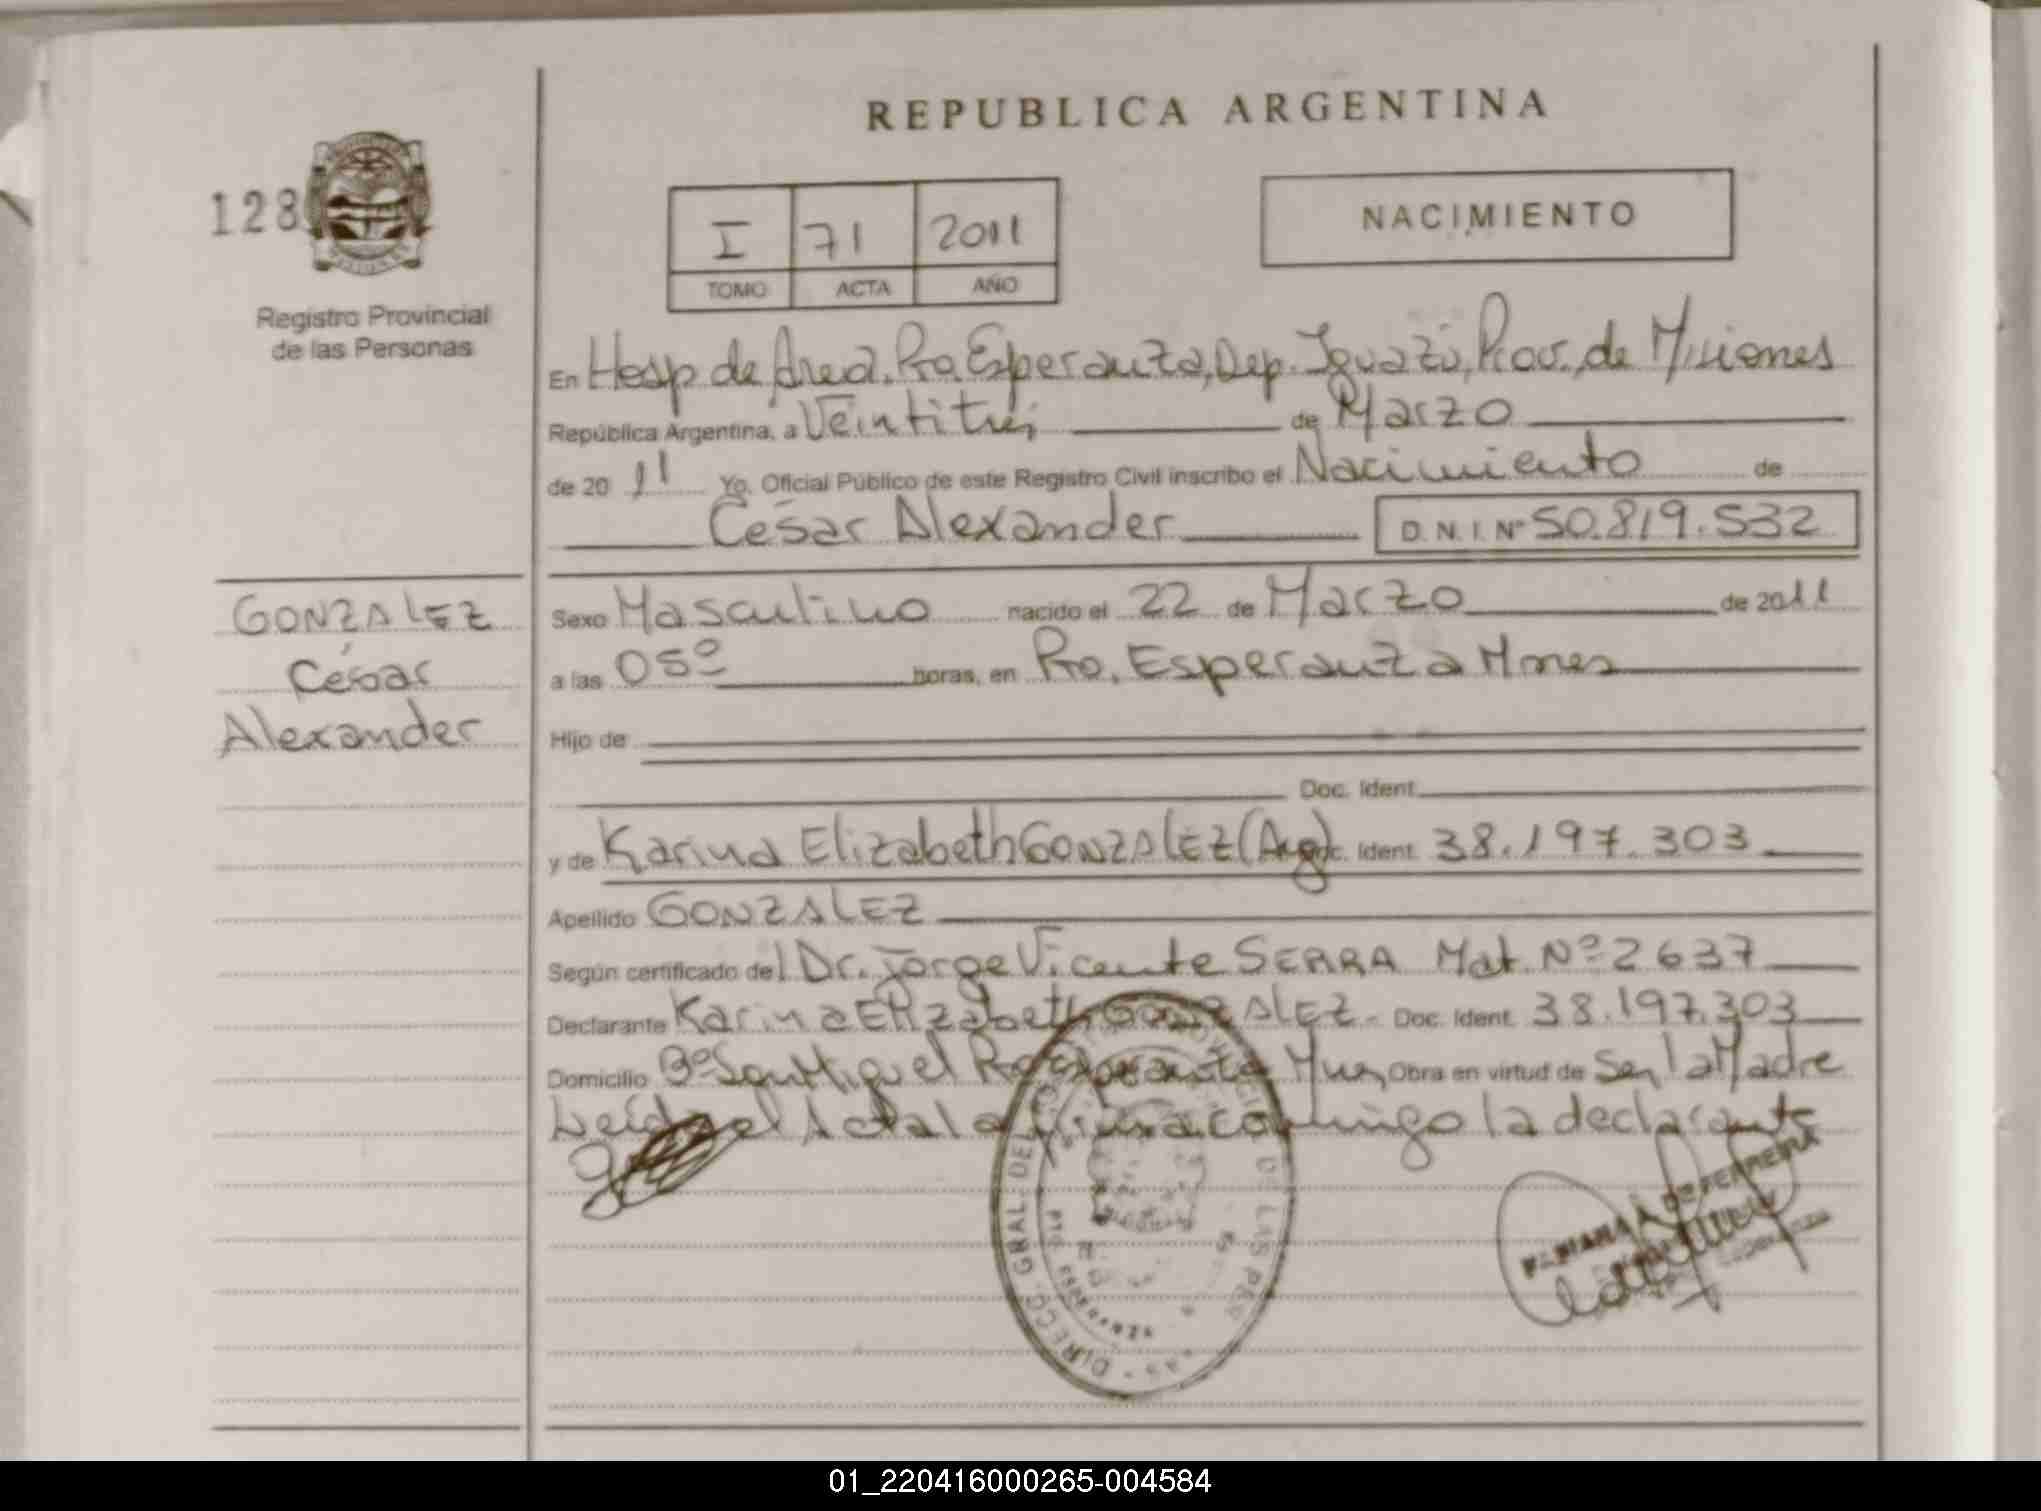 REPUBLICA ARGENTINA
128
I 71 2011
TOMO ACTA AÑO
NACIMIENTO
Registro Provincial
de las Personas
En Hosp de Área. Pto. Esperanza, Dep. Iguazú, Prov. de Misiones
República Argentina, a Veintitrés de Marzo
de 2011 Yo, Oficial Público de este Registro Civil inscribo el Nacimiento de
César Alexander D.N.I. Nº 50.819.532
GONZALEZ
César
Alexander
Sexo Masculino nacido el 22 de Marzo de 2011
a las 05º horas, en Pto. Esperanza Mnes
Hijo de
Doc. Ident.
y de Karina Elizabeth GONZALEZ (Arg) Doc. Ident. 38.197.303
Apellido GONZALEZ
Según certificado del Dr. Jorge Vicente SERRA Mat. Nº 2637
Declarante Karina Elizabeth GONZALEZ - Doc. Ident. 38.197.303
Domicilio Bº San Miguel Pto Esperanza Obra en virtud de Ser la Madre
Leída el Acta la firma conmigo la declarante
DIRECC. GRAL. DEL REGISTRO PROVINCIAL DE LAS PERSONAS
01_220416000265-004584